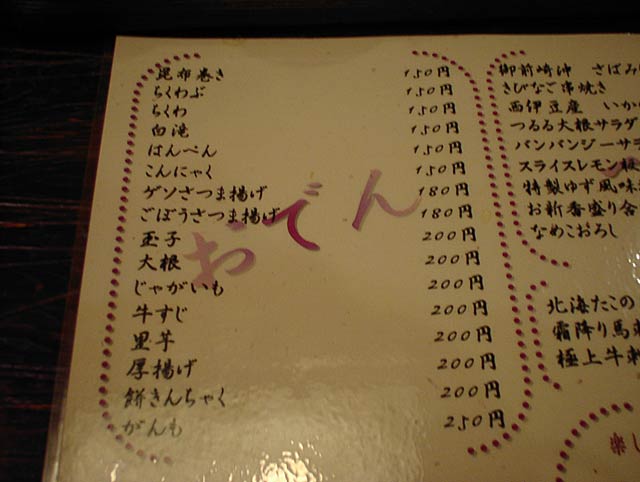 おでん
昆布巻き 150円
ちくわぶ 150円
ちくわ 150円
白滝 150円
はんぺん 150円
こんにゃく 150円
ゲソさつま揚げ 180円
ごぼうさつま揚げ 180円
玉子 200円
大根 200円
じゃがいも 200円
牛すじ 200円
里芋 200円
厚揚げ 200円
餅きんちゃく 200円
がんも 250円
御前崎沖 さばみ
きびなご串焼き
西伊豆産 いか
つるる大根サラダ
バンバンジーサラ
スライスレモン
特製ゆず風味
お新香盛り合
なめこおろし
北海たこの
霜降り馬刺
極上牛刺
楽し